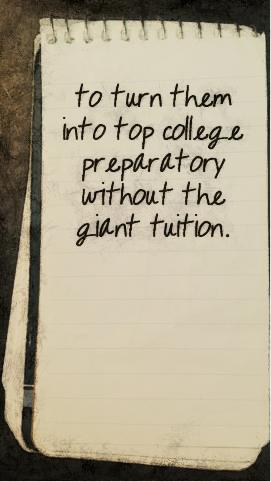 to turn them
into top college
preparatory
without the
giant tuition.